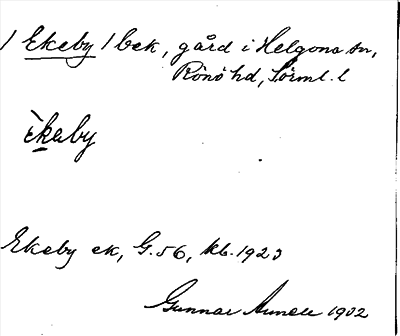 1 Ekeby 1 bek, gård i Helgona sn,
Rönö hd, Sörml. l
èkeby
Ekeby ek, G.56, kb. 1923
Gunnar 1902